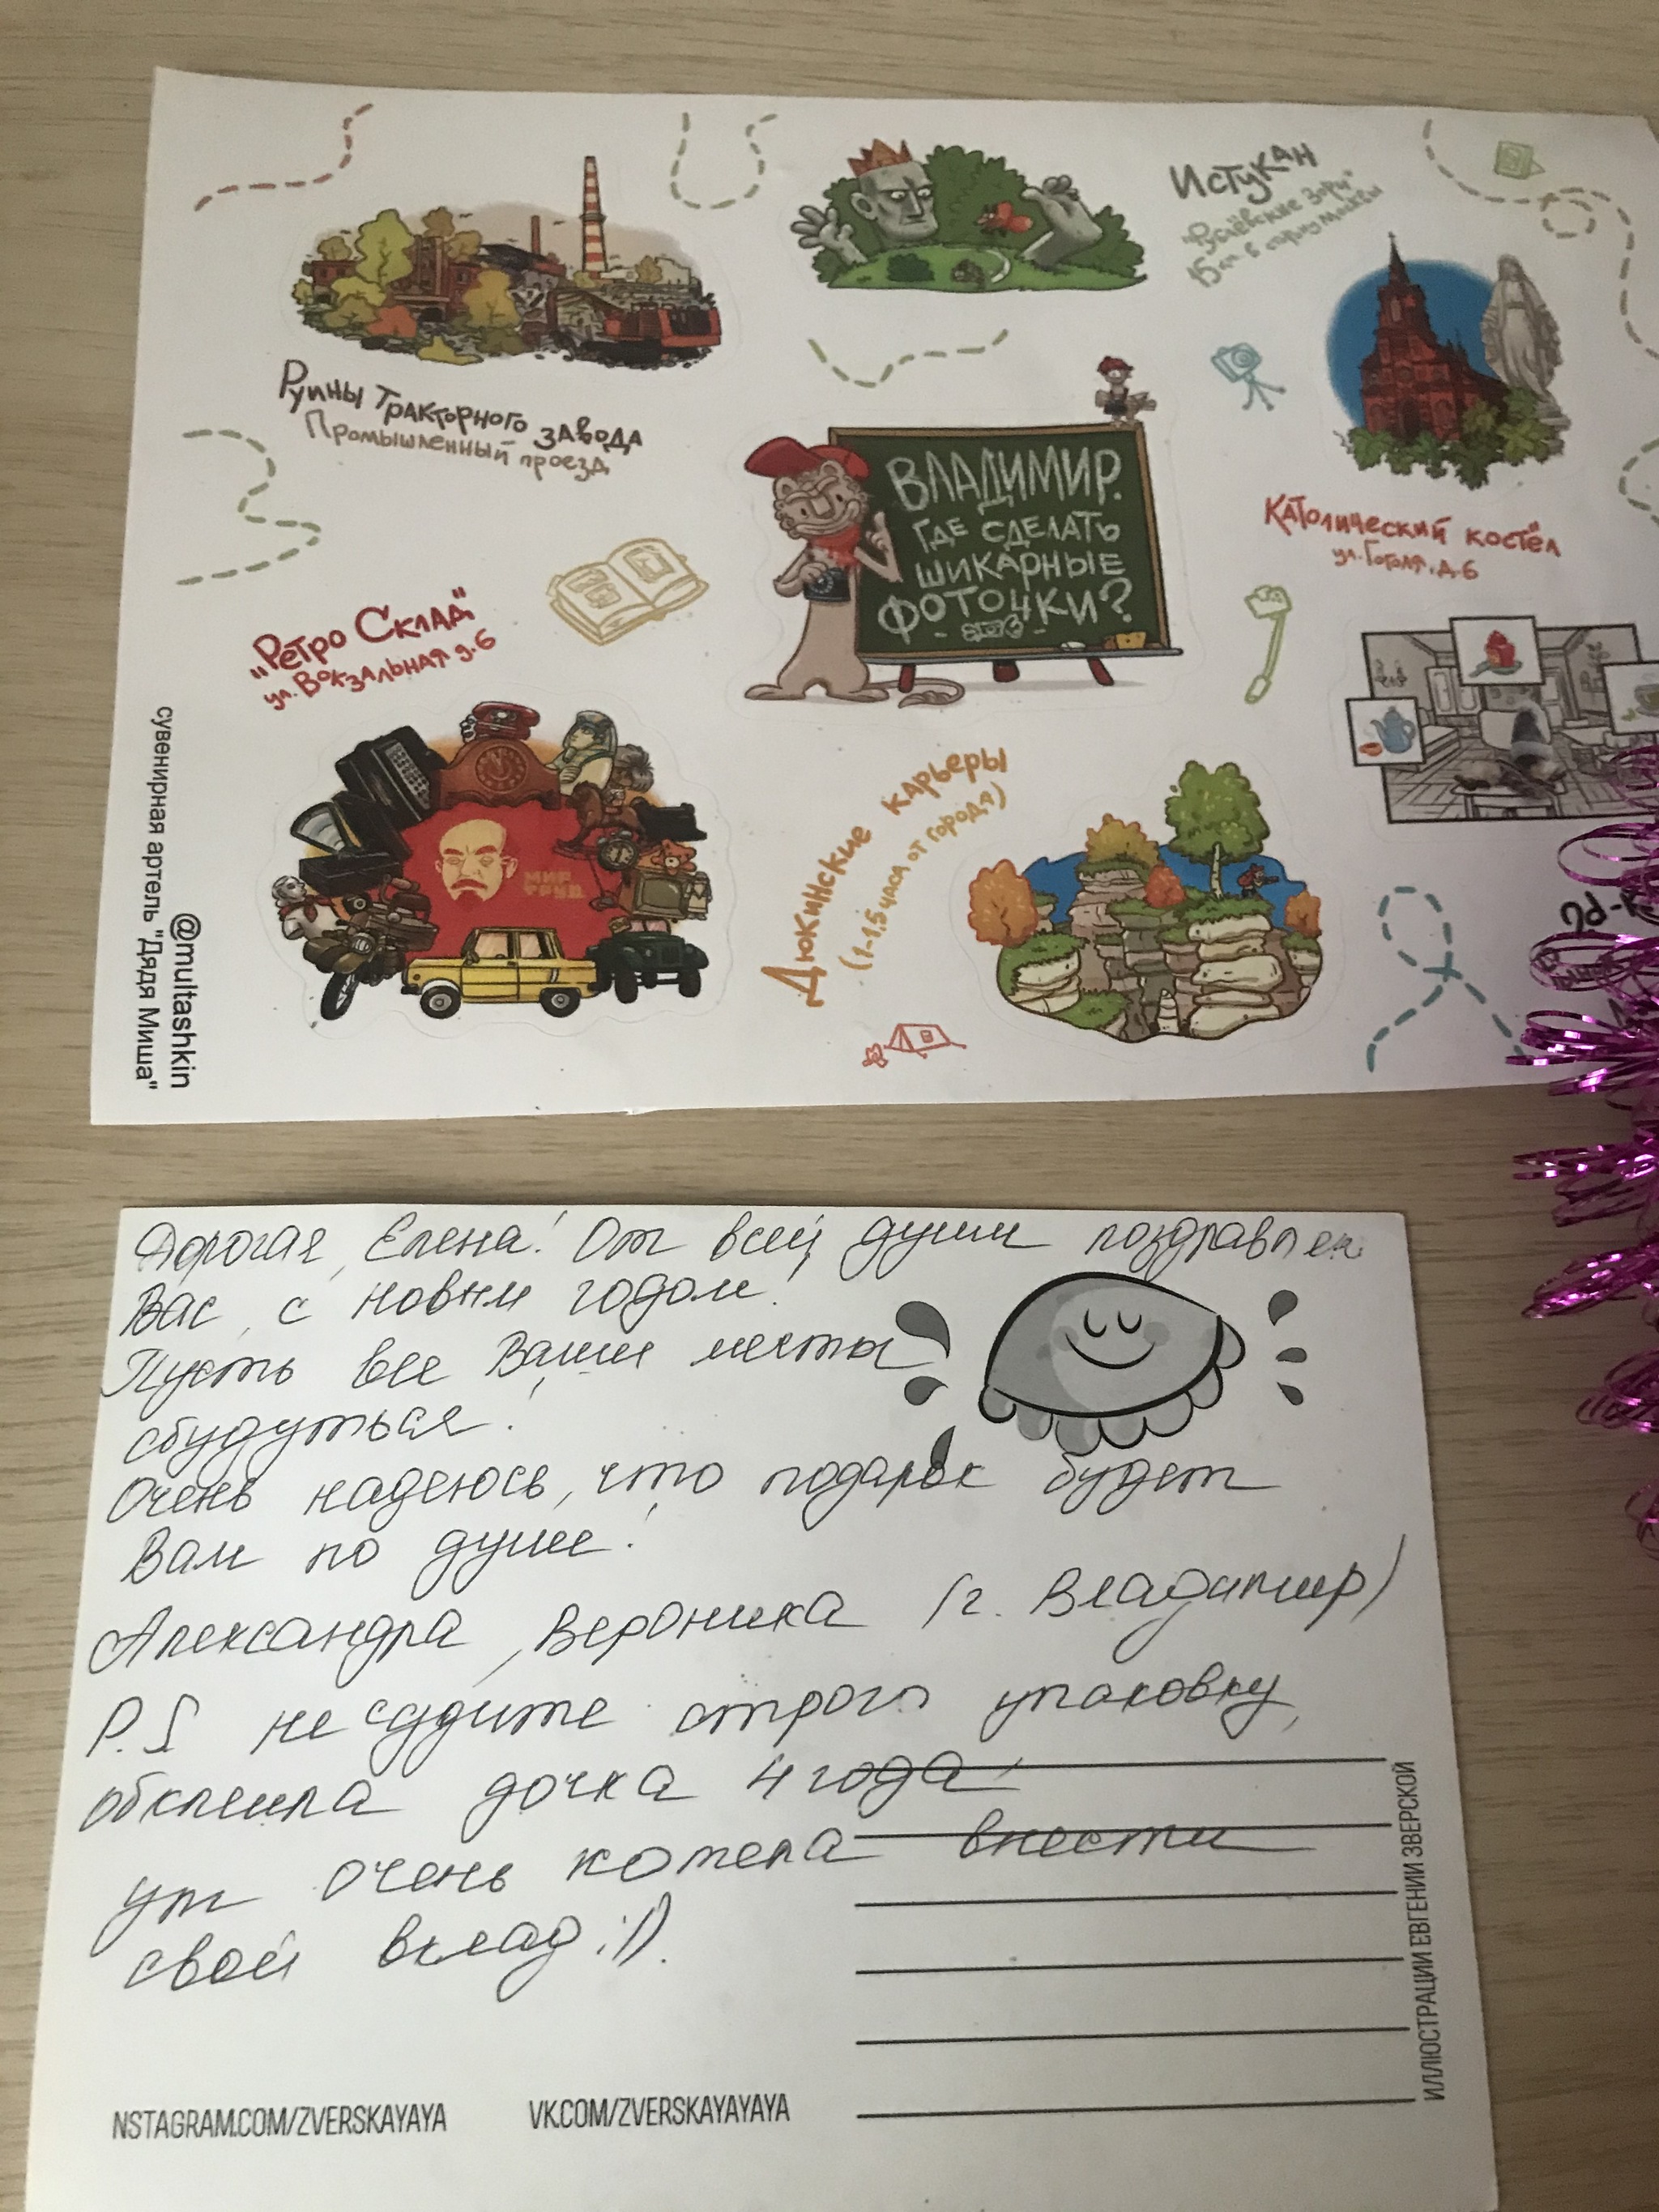 Истукан
"Русаевские зори"
15 км в сторону Москвы
Руины Тракторного завода
Промышленный проезд
ВЛАДИМИР.
ГДЕ СДЕЛАТЬ
ШИКАРНЫЕ
ФОТОЧКИ?
Католический костёл
ул. Гоголя, д.6
"Ретро Склад"
ул. Вокзальная д.6
МИР
ТРУД
Дюкинские карьеры
(1-1,5 часа от города)
@multashkin
сувенирная артель "Дядя Миша"
Дорогая, Елена! От всей души поздравляем
Вас, с новым годом!
Пусть все Ваши мечты
сбудуться!
Очень надеюсь, что подарок будет
Вам по душе!
Александра, Вероника (г. Владимир)
P.S не судите строго упаковку,
обклеила дочка 4 года
уж очень хотела внести
свой вклад :)).
ИЛЛЮСТРАЦИИ ЕВГЕНИИ ЗВЕРСКОЙ
NSTAGRAM.COM/ZVERSKAYAYA
VK.COM/ZVERSKAYAYAYA